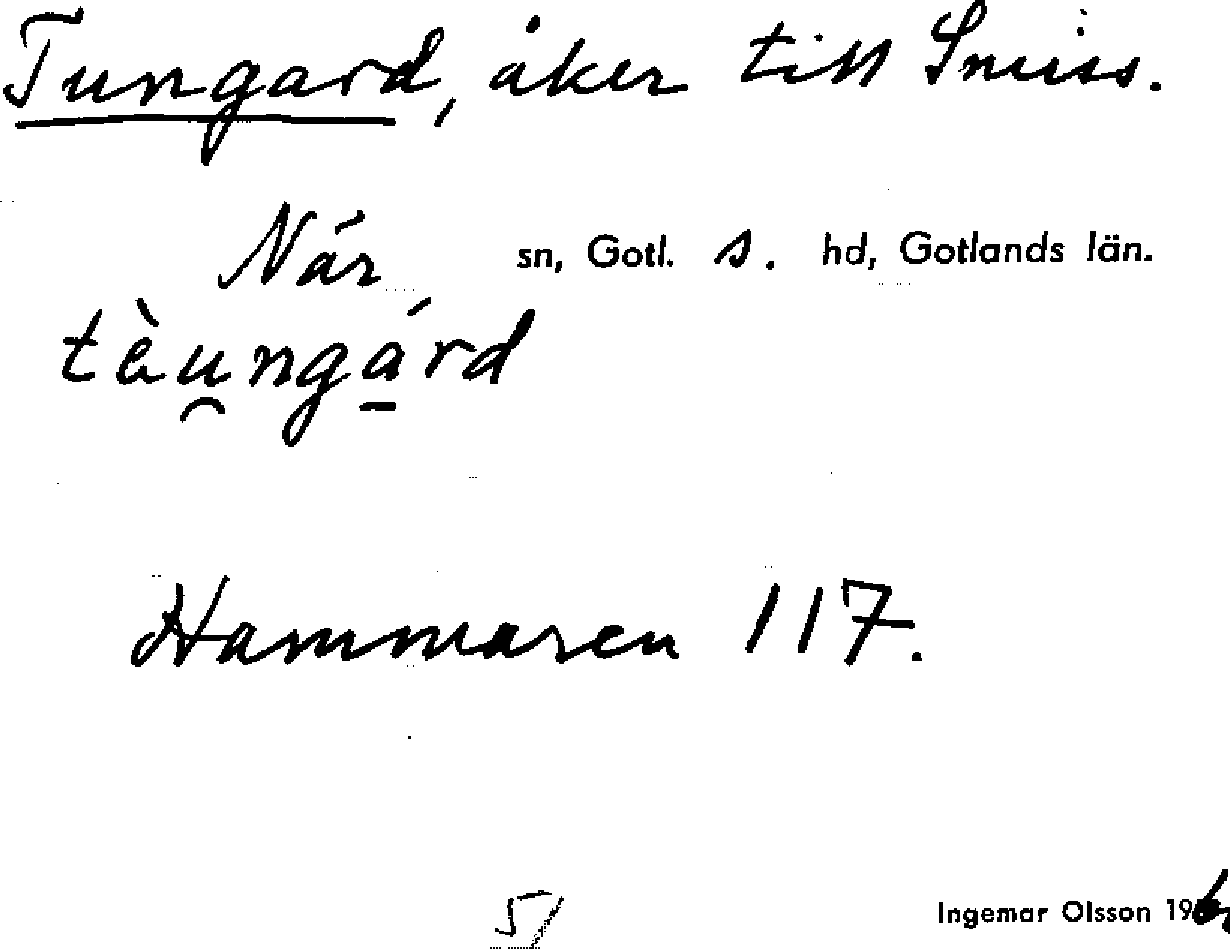 Tungard, åker till Smiss.
När sn, Gotl. s. hd, Gotlands län.
tèu̯ngá̱rd
Hammaren 117.
5/
Ingemar Olsson 19